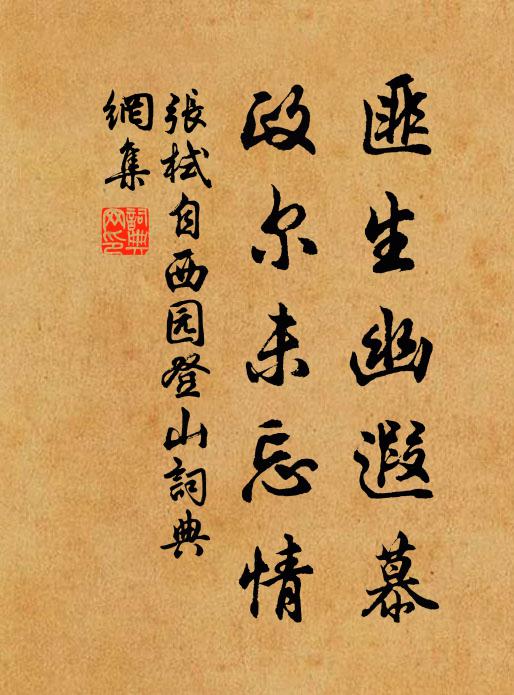 匪生幽遐慕
政尔未忘情
張栻自西园登山詞典
網集
詞典
网印